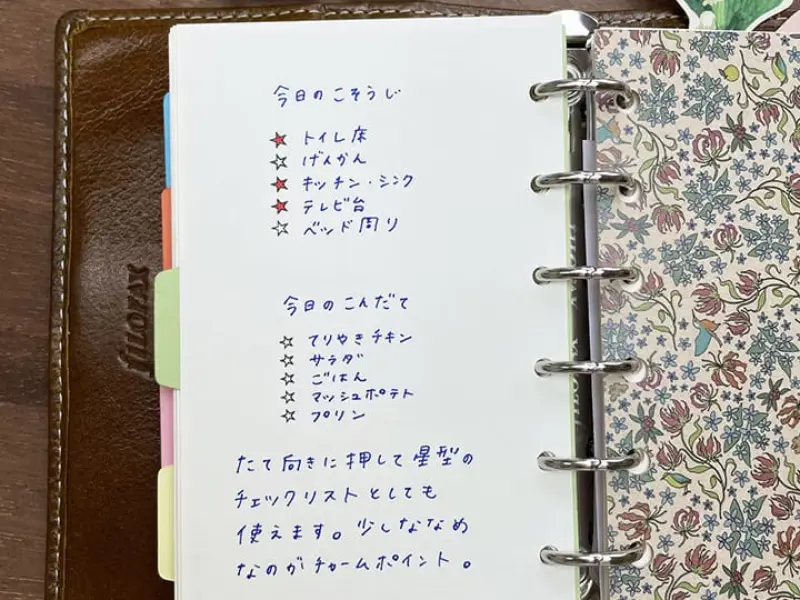 今日のこそうじ
★ トイレ床
☆ げんかん
★ キッチン・シンク
★ テレビ台
☆ ベッド周り
今日のこんだて
☆ てりやきチキン
☆ サラダ
☆ ごはん
☆ マッシュポテト
☆ プリン
たて向きに押して星型の
チェックリストとしても
使えます。少しななめ
なのがチャームポイント。
filofax